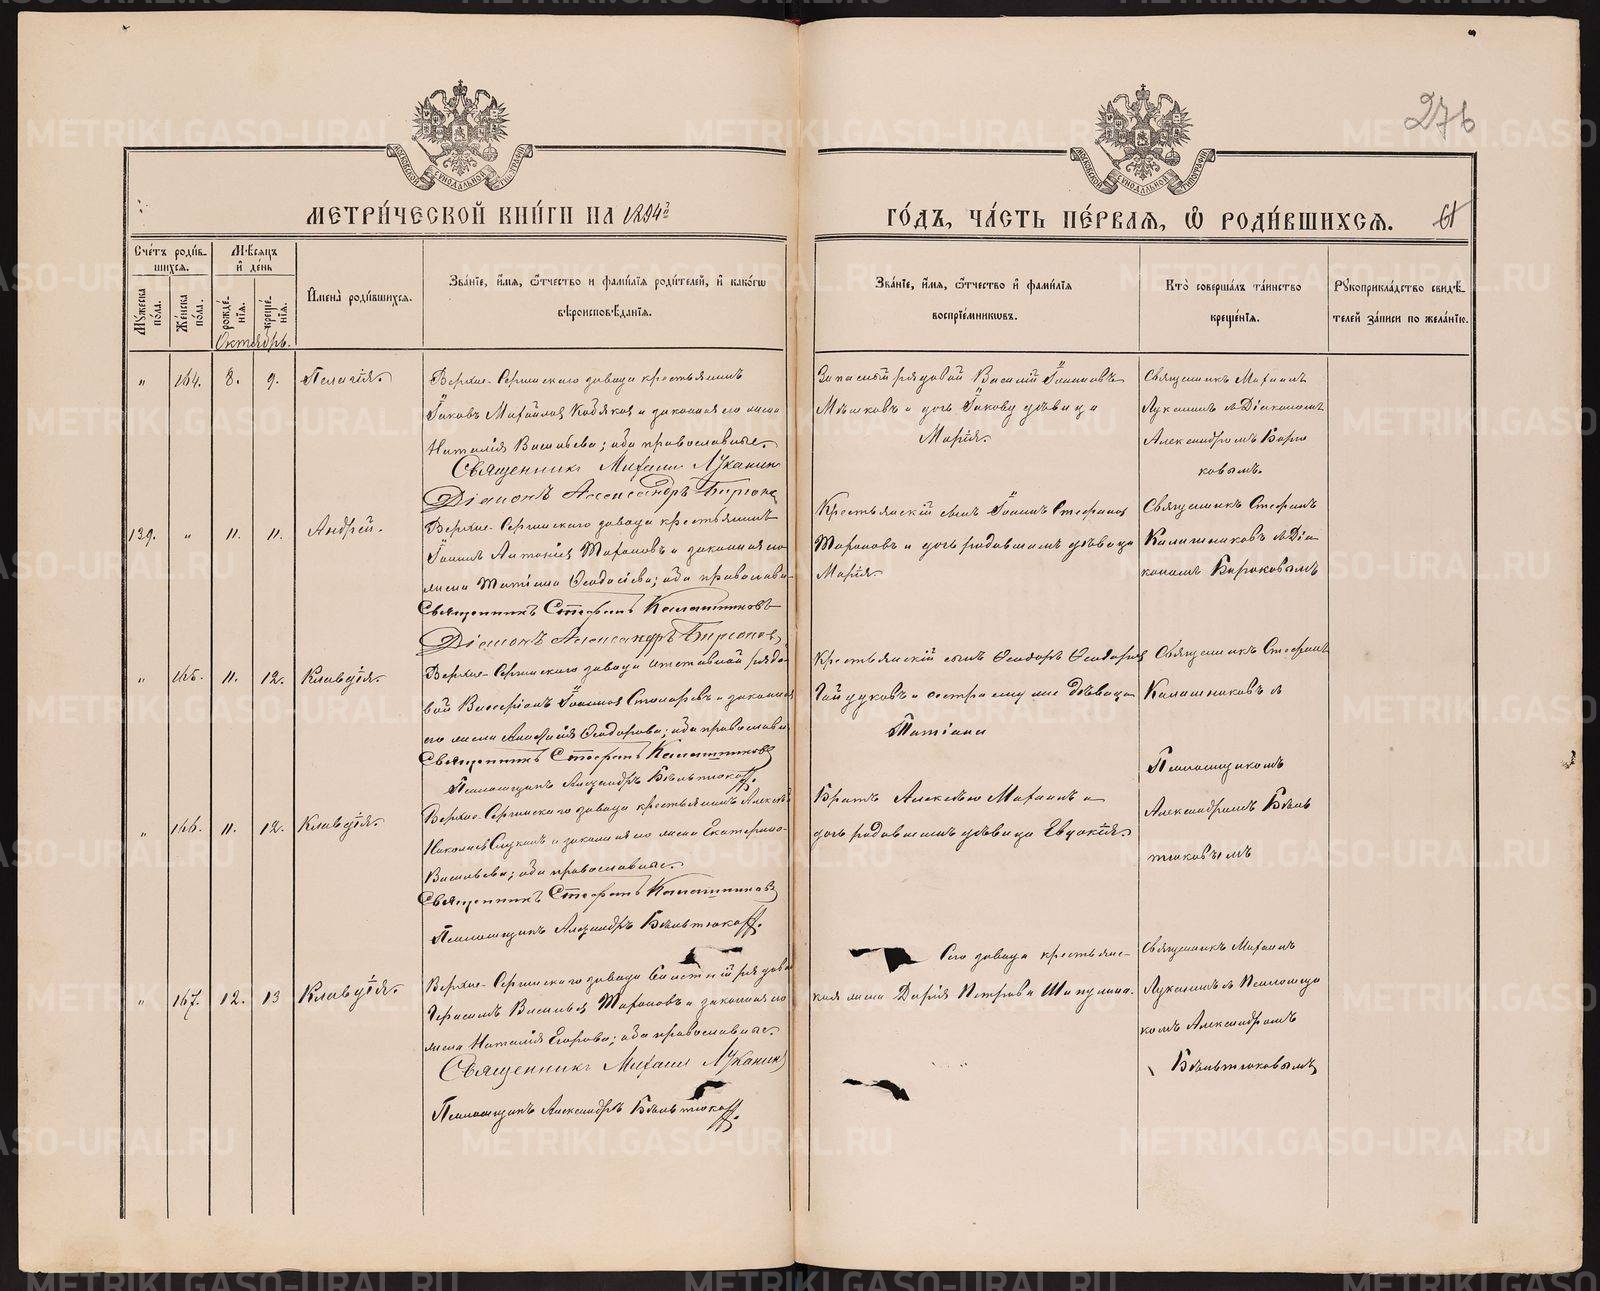 276
МОСКОВСКОЙ СѴНОДАЛЬНОЙ ТИПОГРАФІИ
МОСКОВСКОЙ СѴНОДАЛЬНОЙ ТИПОГРАФІИ
МЕТРИ́ЧЕСКОЙ КНИ́ГИ НА 1894й
ГО́ДЪ, ЧА́СТЬ ПЕ́РВАЯ, Ѡ҆ РОДИ́ВШИХСЯ.
61
Сче́тъ роди́в-
шихся.
Му́жеска по́ла.
Же́нска по́ла.
Мѣ́сяцъ и҆ де́нь
рожде́-
нія.
креще́-
нія.
Октябрь.
И҆мена̀ роди́вшихся.
Зва́ніе, и҆́мя, ѻ҆́тчество и фами́лія роди́телей, и҆ како́гѡ
вѣроисповѣ́данія.
Зва́ніе, и҆́мя, ѻ҆́тчество и҆ фами́лія
воспріе́мникѡвъ.
Кто̀ соверша́лъ та́инство
креще́нія.
Рꙋкоприкла́дство свидѣ́-
телей за́писи по жела́нію.
" 164. 8. 9. Пелагія.
Верхне-Сергинскаго завода крестьянинъ
Іаковъ Михайловъ и законная его жена
Наталія Васильева; оба православные.
Священникъ Михаилъ Луканинъ
Діаконъ Александръ Бирюковъ
Запасный рядовой Василій Іоанновъ
Мѣшковъ и дочь Іакова дѣвица
Марія.
Священникъ Михаилъ
Луканинъ съ Діакономъ
Александромъ Бирю
ковымъ.
139. " 11. 11. Андрей.
Верхне-Сергинскаго завода крестьянинъ
Іоаннъ Антоніевъ и законная его
жена Татіана Ѳеодосіева; оба православн.
Священникъ Стефанъ Калашниковъ
Діаконъ Александръ Бирюковъ
Крестьянскій сынъ Іоаннъ Стефановъ
и дочь родившихъ дѣвица
Марія.
Священникъ Стефанъ
Калашниковъ съ Діа
кономъ Бирюковымъ
" 165. 11. 12. Клавдія.
Верхне-Сергинскаго завода отставной рядо-
вой Валеріанъ Іоанновъ Столяровъ и законная
его жена Анастасія Ѳеодорова; оба православн.
Священникъ Стефанъ Калашниковъ
Псаломщикъ Александръ Бѣльтюковъ.
Крестьянскій сынъ Ѳеодоръ Ѳеодоровъ
Гайдуковъ и сестра ему же дѣвица
Татіана
Священникъ Стефанъ
Калашниковъ съ
Псаломщикомъ
Александромъ Бѣль
тюковымъ
" 166. 11. 12. Клавдія.
Верхне-Сергинскаго завода крестьянинъ Алексѣй
Николаевъ и законная его жена Екатерина
Васильева; оба православные.
Священникъ Стефанъ Калашниковъ
Псаломщикъ Александръ Бѣльтюковъ.
Братъ Алексѣю Михаилъ и
дочь родившихъ дѣвица Евдокія.
" 167. 12. 13 Клавдія.
Верхне-Сергинскаго завода рядовой
Герасимъ Васильевъ и законная его
жена Наталія Егорова; оба православные.
Священникъ Михаилъ Луканинъ
Псаломщикъ Александръ Бѣльтюковъ.
Сего завода крестьянс-
кая жена Дарія Петрова Шипулина.
Священникъ Михаилъ
Луканинъ съ Псаломщи
комъ Александромъ
Бѣльтюковымъ
METRIKI.GASO-URAL.RU